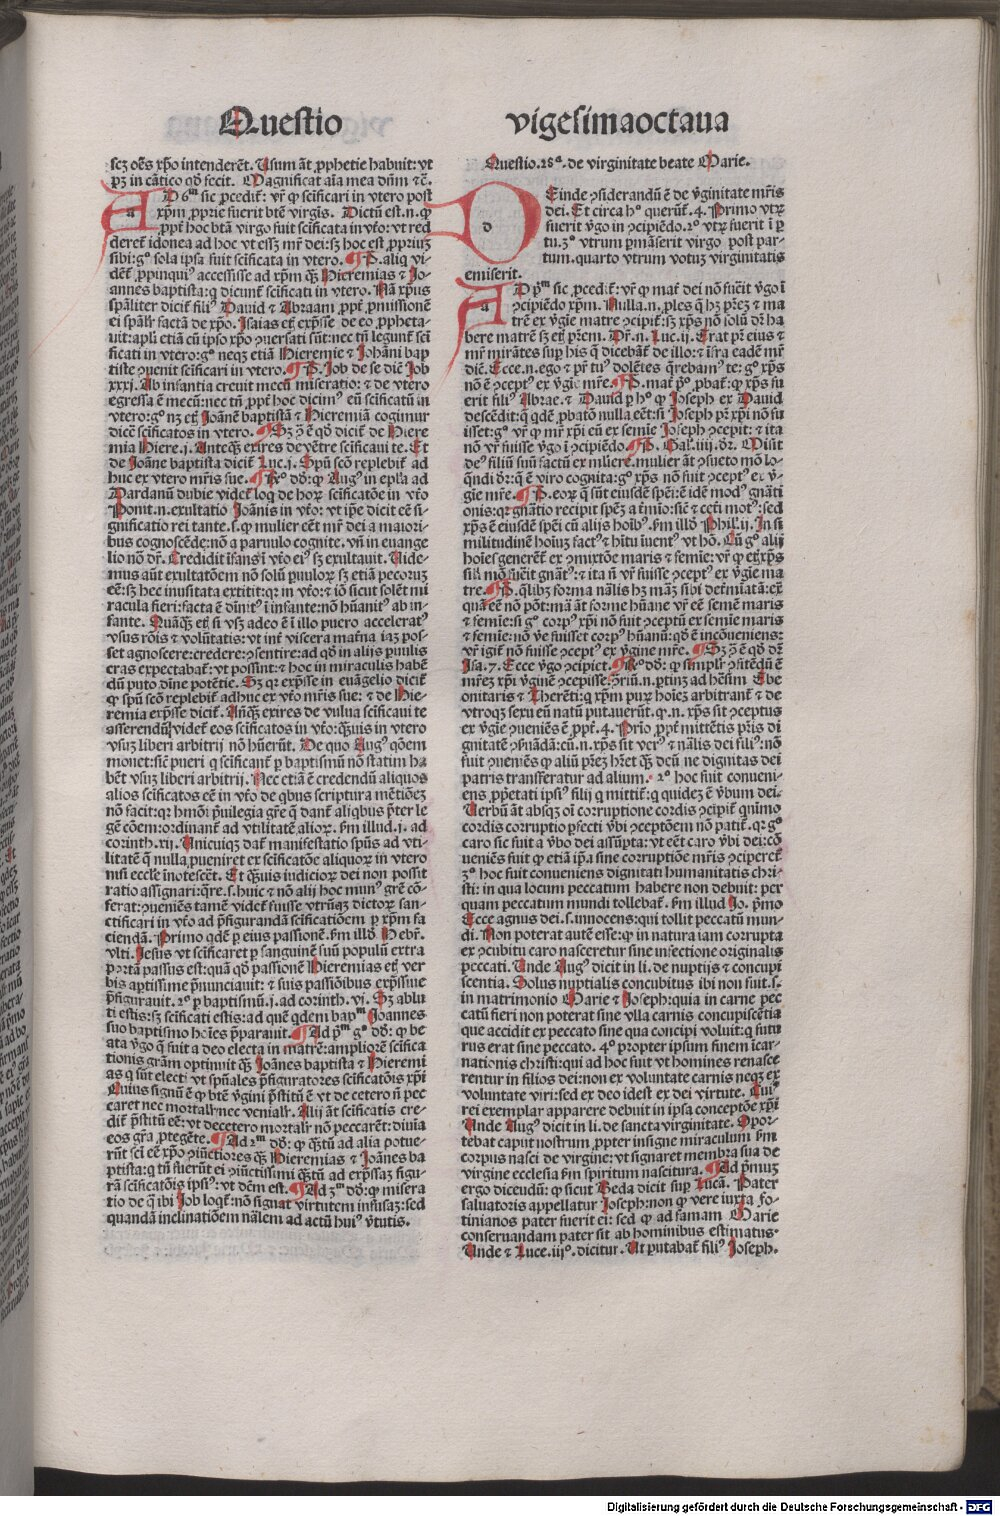 Questio
vigesimaoctaua
scz oēs xp̄o intenderēt. Usum āt ꝓphetie habuit: vt
pꝫ in cātico qd̄ fecit. Magnificat aīa mea dn̄m ⁊ c̄.
AD 6ᵐ sic ꝓcedit᷑: vr̄ ꝙ scificari in vtero post
xp̄m ꝓprie fuerit btē virgīs. Dictū est.n.ꝙ
ꝓpt̓ hoc btā virgo fuit scificata in vt̓o: vt red
deret᷑ idonea ad hoc vt eēꝫ mr̄ dei: sꝫ hoc est ꝓpriuꝫ
sibi: gͦ sola ip̄a fuit scificata in vtero. ¶ P. aliq̇ vi-
dēt᷑ ꝓpinquiꝰ accessisse ad xp̄m qꝫ̄ Hieremias ⁊ Jo-
annes baptista: q̇ dicunt᷑ scificati in vtero. Nā xp̄us
sp̄aliter dicit᷑ filiꝰ Dauid ⁊ Abraam ꝓpt̓ ꝓmissionē
ei sp̄alr̄ factā de xp̄o. Isaias etꝫ exp̄sse de eo ꝓpheta-
uit: apl̓i etiā cū ip̄so xp̄o ꝯuersati sūt: nec tn̄ legunt᷑ sci
ficati in vtero: gͦ neqꝫ etiā Hieremie ⁊ Johāni bap
tiste ꝯuenit scificari in vtero. ¶ P. Job de se dic̄ Job
xxxj. Ab infantia creuit mecū miseratio: ⁊ de vtero
egressa ē mecū: nec tn̄ ꝓpt̓ hoc dicimꝰ eū scificatū in
vtero: gͦ nꝫ etꝫ Joānē baptistā ⁊ Hieremiā cogimur
dicē scificatos in vtero. ¶ Sꝫ ꝯ ē qd̄ dicit᷑ de Hiere
mia Hiere.j. Anteqꝫ̄ exires de vētre scificaui te. Et
de Joāne baptista dicit᷑ Luc.j. Spū scō replebit᷑ ad
huc ex vtero mr̄is sue. ¶ Rͦ dd̄: ꝙ Augꝰ in epl̓a ad
Dardanū dubie videt᷑ loq̇ de horꝝ scificatōe in vt̓o
Ponit.n. exultatio Joānis in vt̓o: vt ip̄e dicit eē si-
gnificatio rei tante.s.ꝙ mulier eēt mr̄ dei a maiori-
bus cognoscēde: nō a paruulo cognite. vn̄ in euange
lio nō dr̄. Credidit īfans ī vt̓o eiꝰ sꝫ exultauit. Uide-
mus aūt exultatōem nō solū ꝑuulorꝝ sꝫ etiā pecoruꝫ
eē: sꝫ hec inusitata extitit: qꝛ in vt̓o: ⁊ iō sicut solēt mi
racula fieri: facta ē dīnitꝰ ī infante: nō hūanitꝰ ab in-
fante. Quāqꝫ etꝫ si vsꝫ adeo ē ī illo puero acceleratꝰ
vsus rōis ⁊ volūtatis: vt int̓ viscera mat̓na iaꝫ pos-
set agnoscere: credere: ꝯsentire: ad qd̄ in alijs ꝑuulis
etas expectabat᷑: vt possint: ⁊ hoc in miraculis habē
dū puto dīne potētie. Sꝫ qꝛ exp̄sse in euāgelio dicit᷑
ꝙ spū scō replebit᷑ adhuc ex vt̓o mr̄is sue: ⁊ de Hie-
remia exp̄sse dicit᷑. Anqꝫ̄ exires de vulua scificaui te
asserendū videt᷑ eos scificatos in vt̓o: qꝫ̄uis in vtero
vsuꝫ liberi arbitrij nō hūerūt. De quo Augꝰ qōem
mouet: sic̄ pueri q̇ scificant᷑ ꝑ baptismū nō statim ha
bēt vsuꝫ liberi arbitrij. Nec etiā ē credendū aliquos
alios scificatos eē in vt̓o de qb̓us scriptura mētiōeꝫ
nō facit: qꝛ hm̄oi p̄uilegia gr̄e q̄ dant᷑ aliqb̓us p̄ter le
gē cōem: ordinant᷑ ad vtilitatē aliorꝝ. ẜm illud.j. ad
corinth.xij. Unicuiqꝫ dat᷑ manifestatio spūs ad vti-
litatē q̄ nulla ꝓueniret ex scificatōe aliquorꝝ in vtero
nisi eccl̓e inotescēt. Et qꝫ̄uis iudiciorꝝ dei non possit
ratio assignari: qr̄e.s. huic ⁊ nō alij hoc munꝰ gr̄e cō-
ferat: ꝯueniēs tamē videt᷑ fuisse vtrūqꝫ istorꝝ san-
ctificari in vt̓o ad p̄figurandā scificatiōem ꝑ xp̄m fa
ciendā. Primo qd̄ē ꝑ eius passionē. ẜm illd̄ Hebr̄.
vlti. Jesus vt scificaret ꝑ sanguinē suū populū extra
portā passus est: quā qd̄ passionē Hieremias etꝫ ver
bis aptissime p̄nunciauit: ⁊ suis passiōibus exp̄ssiue
p̄figurauit. 2ͦ ꝑ baptismū.j. ad corinth.vj. Sꝫ ablu
ti estis: sꝫ scificati estis: ad quē qd̄em bapᵐ Joannes
suo baptismo hoīes p̄parauit. ¶ Ad p̄ᵐ gͦ dd̄: ꝙ be
ata v̓go q̄ fuit a deo electa in matrē: ampliorē scifica
tionis gr̄am optinuit qꝫ̄ Joānes baptista ⁊ Hieremi
as q̇ sūt electi vt sp̄uales p̄figuratores scificatōis xp̄i
Cuius signū ē ꝙ btē v̓gini p̄stitū ē vt de cetero n̄ pec
caret nec mortalr̄ nec venialr̄. Alij āt scificatis cre-
dit᷑ p̄stitū eē: vt decetero mortalr̄ nō peccarēt: diuīa
eos gr̄a ꝓtegēte. ¶ Ad 2ᵐ dd̄: ꝙ qꝫ̄tū ad alia potue-
rūt sci eē xp̄o ꝯiūctiores qꝫ̄ Hieremias ⁊ Joānes ba
ptista: q̇ tn̄ fuerūt ei ꝯiūctissimi qꝫ̄tū ad exp̄ssaꝫ figu-
rā scificatōis ipsiꝰ: vt dc̄m est. ¶ Ad 3ᵐ dd̄: ꝙ misera
tio de q̄ ibi Job loqt᷑: nō signat virtutem infusaꝫ: sed
quandā inclinatiōem nāl̓em ad actū huiꝰ v̓tutis.
Questio.28ᵃ. de virginitate beate Marie.
DEinde ꝯsiderandū ē de v̓ginitate mr̄is
dei. Et circa hͦ querūt᷑.4. Primo vtꝝ
fuerit v̓go in ꝯcipiēdo. 2ͦ vtꝝ fuerit ī ꝑ
tu. 3ͦ vtrum ꝑmāserit virgo post par-
tum. quarto vtrum votuꝫ virginitatis
emiserit.
AD p̄ᵐ sic ꝓcedit᷑: vr̄ ꝙ mat̓ dei nō fuerit v̓go ī
ꝯcipiēdo xp̄m. Nulla.n. ꝓles q̄ hꝫ pr̄eꝫ ⁊ ma
trē ex v̓gie matre ꝯcipit᷑: sꝫ xp̄s nō solū dr̄ ha
bere matrē sꝫ etꝫ pr̄em. Dr̄.n. Luc.ij. Erat pr̄ eius ⁊
mr̄ mirātes suꝑ his q̄ dicebāt᷑ de illo: ⁊ īfra eadē mr̄
dic̄. Ecce.n. ego ⁊ pr̄ tuꝰ dolētes q̄rebamꝰ te: gͦ xp̄s
nō ē ꝯceptꝰ ex v̓gie mr̄e. ¶ P. mat̓ pͦ ꝓbat᷑: ꝙ xp̄s fu
erit filiꝰ Abrae. ⁊ Dauid ꝑ hͦ ꝙ Joseph ex Dauid
descēdit: q̄ qd̄ē ꝓbatō nulla eēt: si Joseph pr̄ xp̄i nō fu
isset: gͦ vr̄ ꝙ mr̄ xp̄i eū ex semie Joseph ꝯcepit: ⁊ ita
nō vr̄ fuisse v̓go ī ꝯcipiēdo. ¶ P. Gal̓.iiij. dr̄. Misit
deꝰ filiū suū factū ex muliere. mulier āt ꝯsueto mō lo-
q̄ndi dr̄: q̄ ē viro cognita: gͦ xp̄s nō fuit ꝯceptꝰ ex v̓-
gie mr̄e. ¶ P. eorꝝ q̄ sūt eiusdē sp̄ei: ē idē modꝰ gnāti
onis: qꝛ gn̄atio recipit sp̄eꝫ a t̓mīo: sic̄ ⁊ ceti motꝰ: sed
xp̄s ē eiusdē sp̄ei cū alijs hoībꝰ. ẜm illd̄ Phil̓.ij. In si
militudinē hoīuꝫ factꝰ ⁊ hītu iuentꝰ vt hō. Cū gͦ alij
hoīes generēt᷑ ex ꝯmixtōe maris ⁊ femie: vr̄ ꝙ etꝫ xp̄s
sil̓i mō fuerit gnātꝰ: ⁊ ita n̄ vr̄ fuisse ꝯceptꝰ ex v̓gie ma
tre. ¶ P. q̄libꝫ forma nāl̓is hꝫ māꝫ sibi det̓mīatā: ex
quā eē nō pōt: mā āt forme hūane vr̄ eē semē maris
⁊ femie: si gͦ corpꝰ xp̄i nō fuit ꝯceptū ex semie maris
⁊ femie: nō ve fuisset corpꝰ hūanū: qd̄ ē incōueniens:
vr̄ igit᷑ nō fuisse ꝯceptꝰ ex v̓gine mr̄e. ¶ Sꝫ ꝯ ē qd̄ dr̄
Isa.7. Ecce v̓go ꝯcipiet. ¶ Rͦ dd̄: ꝙ simplr̄ ꝯfitēdū ē
mr̄eꝫ xp̄i v̓ginē ꝯcepisse. Ꝯriū.n. ptinꝫ ad hēsim Ebe
onitaris ⁊ Cherēti: q̇ xp̄m puꝝ hoieꝫ arbitrant᷑ ⁊ de
vtroqꝫ sexu eū natū putauerūt. ꝙ.n. xp̄s sit ꝯceptus
ex v̓gie ꝯueniēs ē ꝓpt̓.4. Prio ꝓpt̓ mittētis pr̄is di
gnitatē ꝯẜuādā: cū.n. xp̄s sit verꝰ ⁊ nāl̓is dei filiꝰ: nō
fuit ꝯueniēs ꝙ aliū pr̄eꝫ hr̄et qꝫ̄ deū: ne dignitas dei
patris transferatur ad alium. 2ͦ hoc fuit conueni-
ens ꝓp̄etati ipsiꝰ filij q̇ mittit᷑: q̇ quideꝫ ē v̓bum dei.
Uerbū āt absqꝫ oī corruptione cordis ꝯcipit᷑ qnimo
cordis corruptio ꝑfecti v̓bi ꝯceptōem nō patit᷑. qꝛ gͦ
caro sic fuit a v̓bo dei assūpta: vt eēt caro v̓bi dei: cō
ueniēs fuit ꝙ etiā ip̄a sine corruptiōe mr̄is ꝯciperet᷑
3ͦ hoc fuit conueniens dignitati humanitatis chri-
sti: in qua locum peccatum habere non debuit: per
quam peccatum mundi tollebat᷑. ẜm illud Jo. p̓mo
Ecce agnus dei.s. innocens: qui tollit peccatū mun-
di. Non poterat autē esse: ꝙ in natura iam corrupta
ex ꝯcubitu caro nasceretur sine infectione originalis
peccati. Unde Augꝰ dicit in li. de nuptijs ⁊ concupi
scentia. Solus nuptialis concubitus ibi non fuit.s.
in matrimonio Marie ⁊ Joseph: quia in carne pec
catū fieri non poterat sine vlla carnis concupiscētia
que accidit ex peccato sine qua concipi voluit: q̇ futu
rus erat sine peccato. 4ͦ propter ipsum finem īcar-
nationis christi: qui ad hoc fuit vt homines renasce
rentur in filios dei: non ex voluntate carnis neqꝫ ex
voluntate viri: sed ex deo idest ex dei virtute. Cuiꝰ
rei exemplar apparere debuit in ipsa conceptōe xp̄i
Unde Augꝰ dicit in li. de sancta virginitate. Opor-
tebat caput nostrum ꝓpter insigne miraculum ẜm
corpus nasci de virgine: vt signaret membra sua de
virgine ecclesia ẜm spiritum nascitura. ¶ Ad p̓muꝫ
ergo dicendū: ꝙ sicut Beda dicit sup̓ Lucā. Pater
saluatoris appellatur Joseph: non ꝙ vere iuxta fo-
tinianos pater fuerit ei: sed ꝙ ad famam Marie
conseruandam pater sit ab hominibus estimatus.
Unde ⁊ Luce.iijͦ. dicitur. Ut putabat᷑ filiꝰ Joseph.
Digitalisierung gefördert durch die Deutsche Forschungsgemeinschaft - DFG